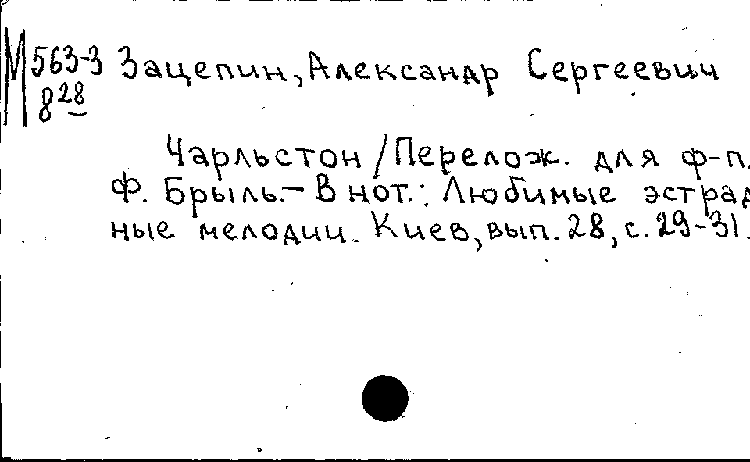 М 563-3 Зацепин, Александр Сергеевич
828
Чарльстон / Перелож. для ф-п.
Ф. Брыль. – В нот.: Любимые эстрад
ные мелодии. Киев, вып. 28, с. 29-31.